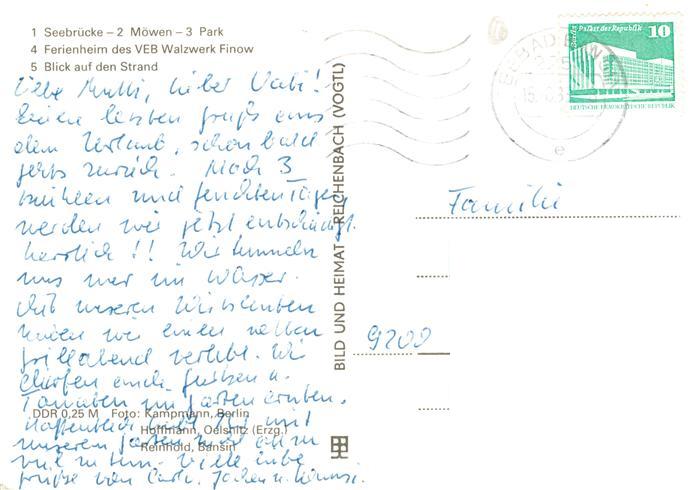 1 Seebrücke – 2 Möwen – 3 Park
4 Ferienheim des VEB Walzwerk Finow
5 Blick auf den Strand
Liebe Mutti, lieber Vati!
Einen letzten Gruß aus
dem Urlaub, schon bald
geht's zurück. Nach 3
kühlen und feuchten Tagen
werden wir jetzt entschädigt.
herrlich!! Wir tummeln
uns nur im Wasser.
Mit unseren Wirtsleuten
haben wir einen netten
Grillabend verlebt. Wir
durften auch Gurken u.
Tomaten im Garten ernten.
Hoffentlich mit
unserem Garten nicht
viel zu tun. Viele liebe
Grüße von Jochen u.
DDR 0,25 M Foto: Kampmann, Berlin
Hoffmann, Oelsnitz (Erzg.)
Reinhold, Bansin
BILD UND HEIMAT REICHENBACH (VOGTL)
Berlin Palast der Republik
10
DEUTSCHE DEMOKRATISCHE REPUBLIK
e
Familie
9200